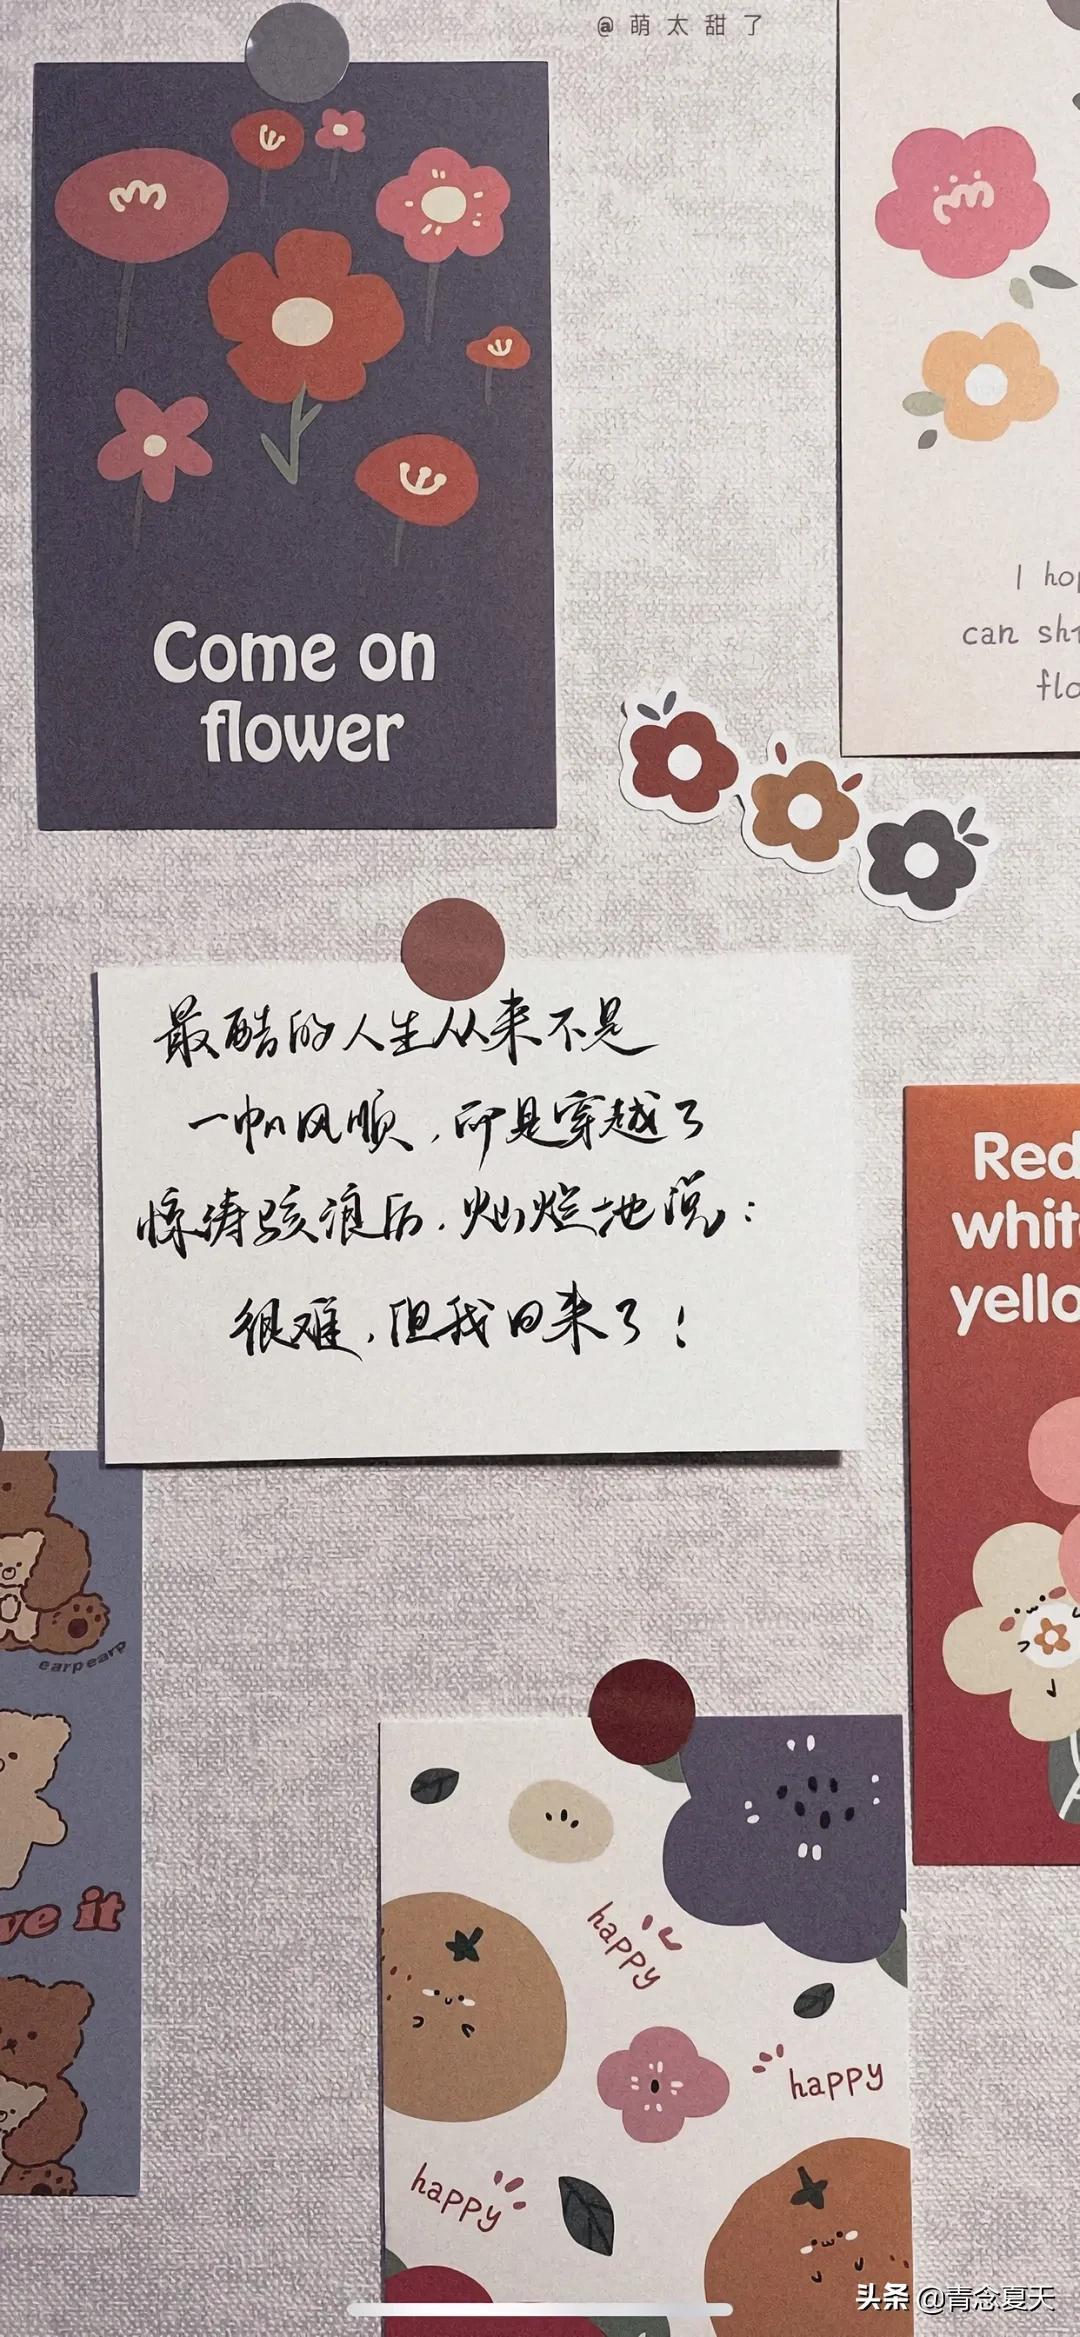 @萌太甜了
Come on
flower
I hop
can shi
flo
最酷的人生从来不是
一帆风顺，而是穿越了
惊涛骇浪后，灿烂地说：
很难，但我回来了！
Red
white
yello
earpearp
ve it
happy
happy
happy
头条 @青念夏天